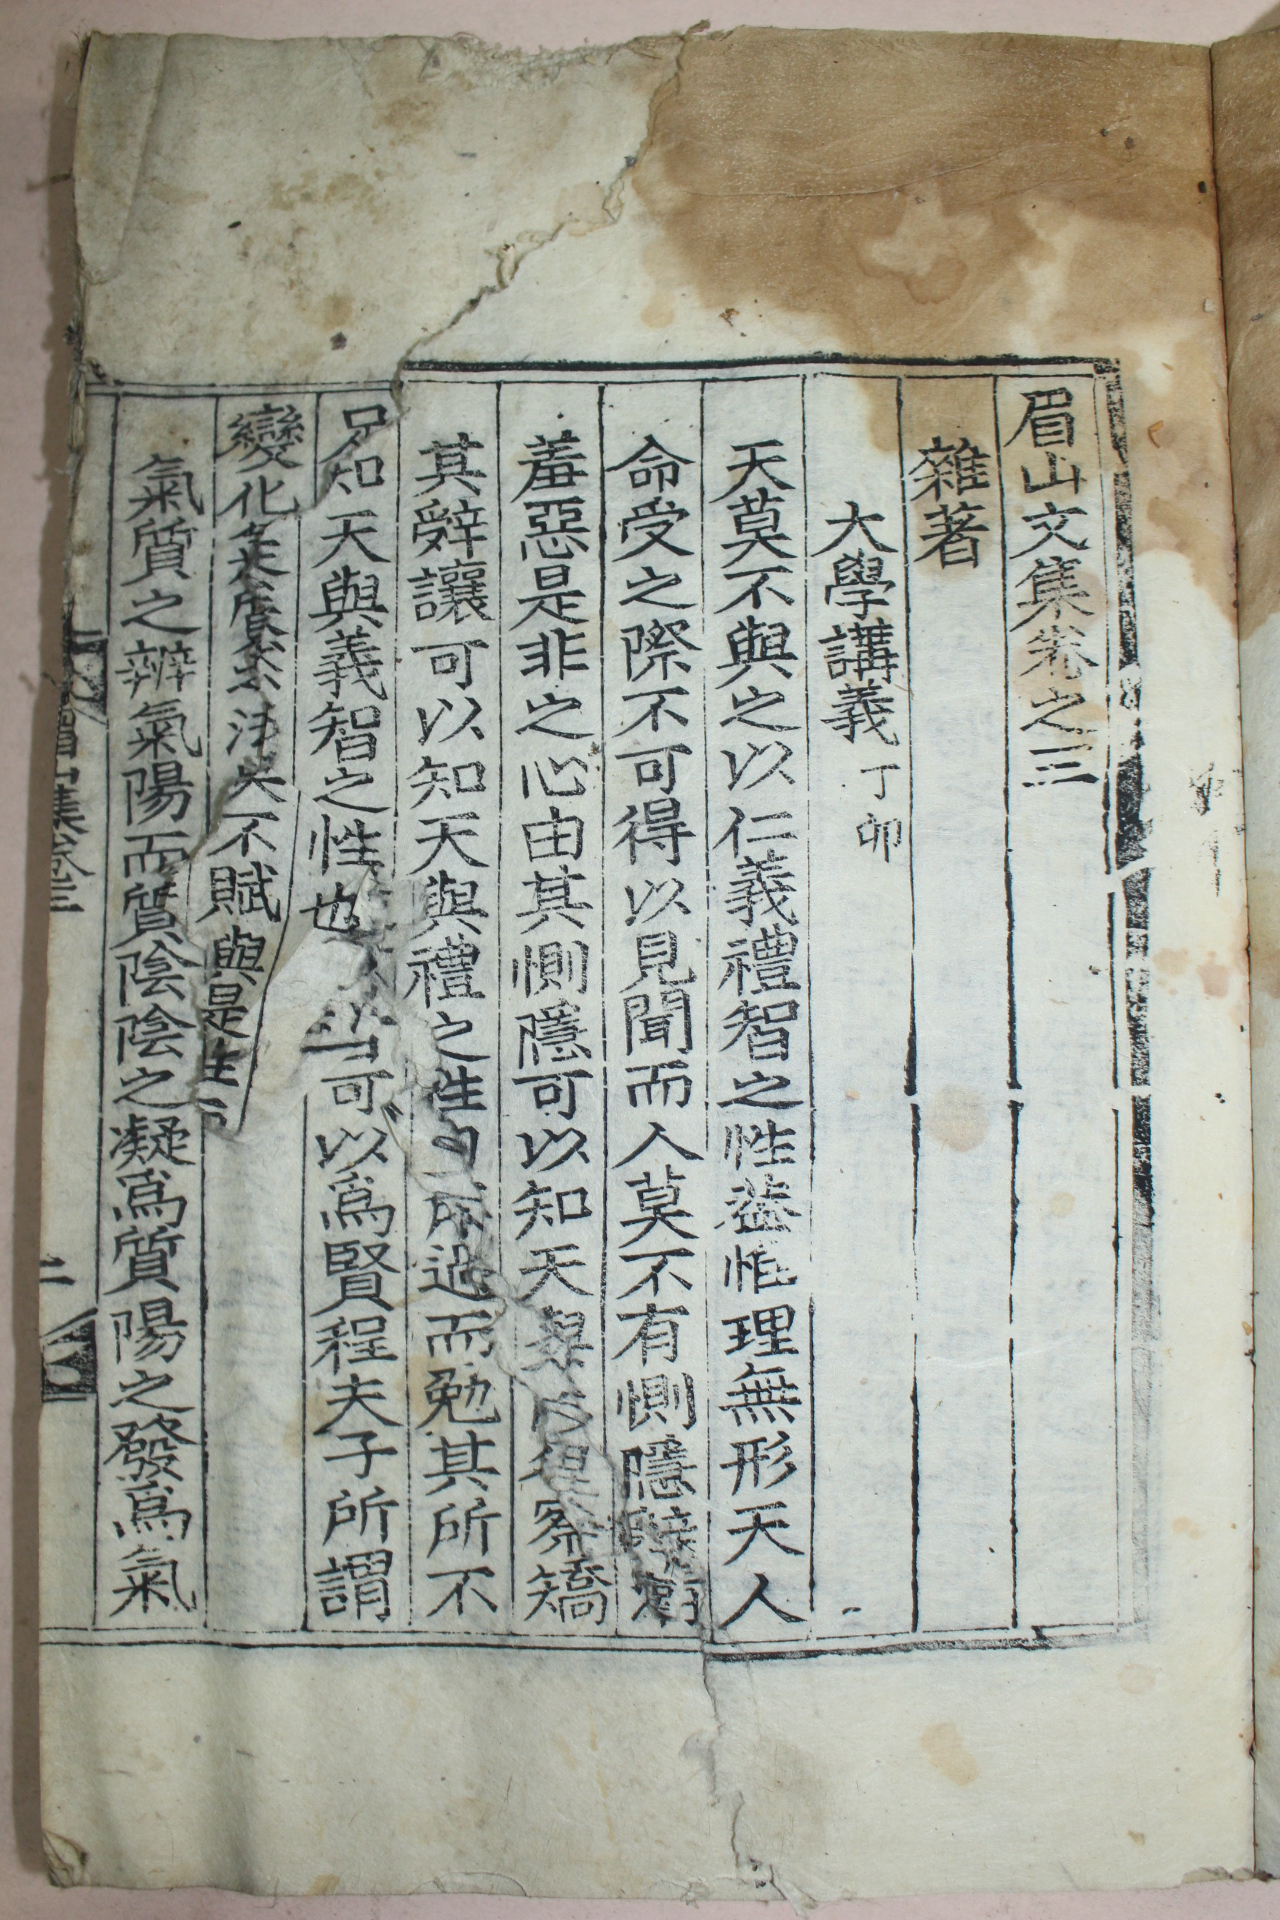 眉山文集卷之三
雜著
大學講義 丁卯
天莫不與之以仁義禮智之性益惟理無形天人
命受之際不可得以見聞而人莫不有惻隱辭讓
羞惡是非之心由其惻隱可以知天與 察矯
其辭讓可以知天與禮之性 過而勉其所不
知天與義智之性也 可以爲賢程夫子所謂
變化氣質 不賦與是性
氣質之辨氣陽而質陰陰之凝爲質陽之發爲氣
眉山集卷三
二